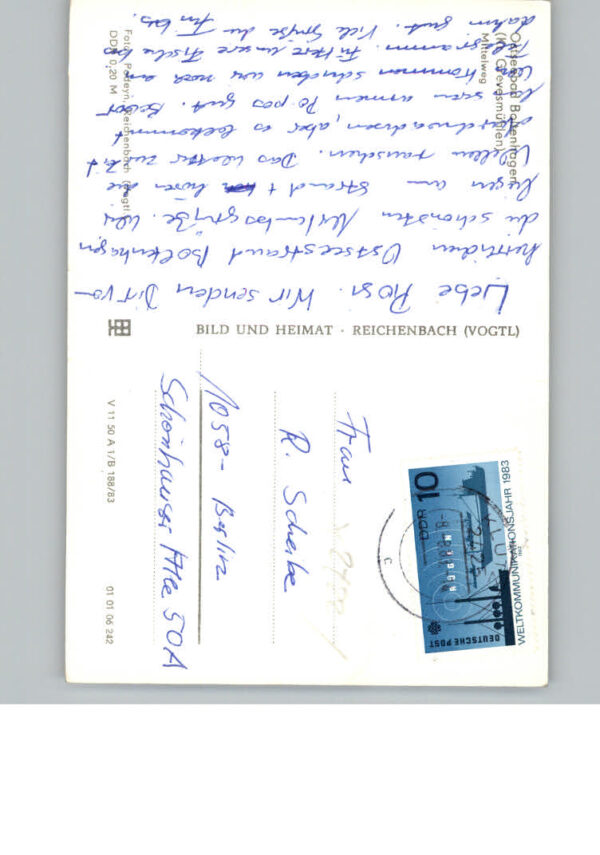 Liebe Rosi. Wir senden Dir vo-
herrlichen Ostseestrand Boltenhagen
die schönsten Urlaubsgrüße. Wir
liegen am Strand + hören die
Wellen rauschen. Das Wetter zur Zeit
durchwachsen, aber es bekommt
unseren armen Po pos gut. Bevor
wir kommen schicken wir noch ein
Telegramm. Füttere unsere Fische bis
dahin gut. Viele Grüße die
Ostseebad Boltenhagen
(Kr. Grevesmühlen)
Mittelweg
Foto: Reichenbach (Vogtl)
DDR 0,20 M
BILD UND HEIMAT · REICHENBACH (VOGTL)
V 11 50 A 1/B 188/83
01 01 06 242
Frau
R. Scheibe
1058 - Berlin
Schönhauser Allee 50A
DDR 10
RÜGEN
DEUTSCHE POST
WELTKOMMUNIKATIONSJAHR 1983